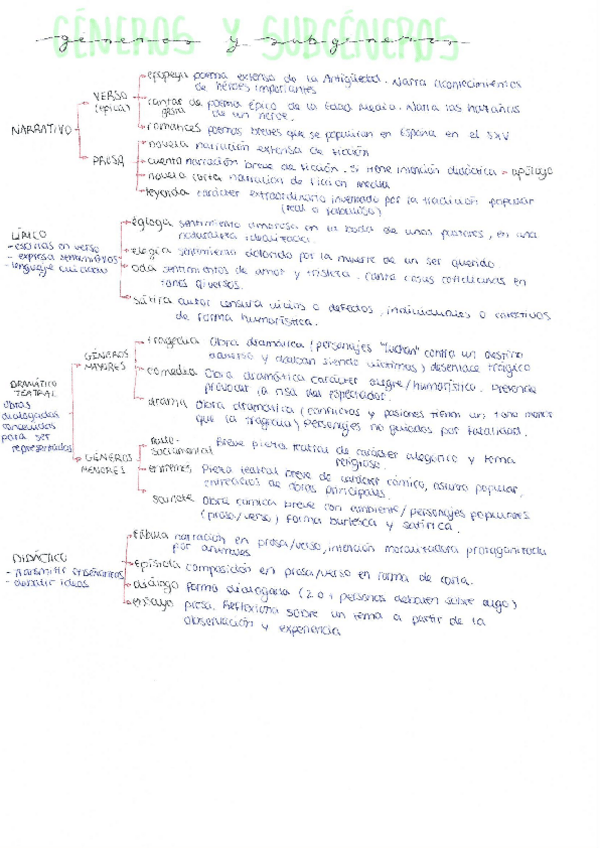 GÉNEROS Y SUBGÉNEROS
generos y subgeneros
NARRATIVO
VERSO
(épica)
epopeya poema extenso de la Antigüedad. Narra acontecimientos
de héroes importantes
cantar de gesta poema épico de la Edad Media. Narra las hazañas
de un héroe.
romances poemas breves que se popularizan en España en el SXV
PROSA
novela narración extensa de ficción
cuento narración breve de ficción. Si tiene intención didáctica = apólogo
novela corta narración de ficción media
leyenda carácter extraordinario inventado por la tradición popular
(real o fabuloso)
LÍRICO
- escritas en verso
- expresa sentimientos
- lenguaje cuidado
égloga sentimiento amoroso en la boca de unos pastores, en una
naturaleza idealizada.
elegía sentimiento dolorido por la muerte de un ser querido.
oda sentimientos de amor y tristeza. Canta cosas cotidianas en
tonos diversos.
sátira autor censura vicios o defectos, individuales o colectivos
de forma humorística.
DRAMÁTICO
TEATRAL
obras
dialogadas
concebidas
para ser
representadas
GÉNEROS
MAYORES
tragedia Obra dramática (personajes "luchan" contra un destino
adverso y acaban siendo víctimas) desenlace trágico
comedia Obra dramática carácter alegre/humorístico. Pretende
provocar la risa del espectador.
drama Obra dramática (conflictos y pasiones tienen un tono menor
que la tragedia) Personajes no guiados por fatalidad.
GÉNEROS
MENORES
auto-
sacramental Breve pieza teatral de carácter alegórico y tema
religioso.
entremés Pieza teatral breve de carácter cómico, asunto popular,
entreactos de obras principales.
sainete Obra cómica breve con ambiente/personajes populares
(prosa/verso) forma burlesca y satírica.
DIDÁCTICO
- transmitir enseñanzas
- debatir ideas
fábula narración en prosa/verso, intención moralizadora protagonizada
por animales
epístola composición en prosa/verso en forma de carta.
diálogo forma dialogada (2 o + personas debaten sobre algo)
ensayo prosa. Reflexiona sobre un tema a partir de la
observación y experiencia